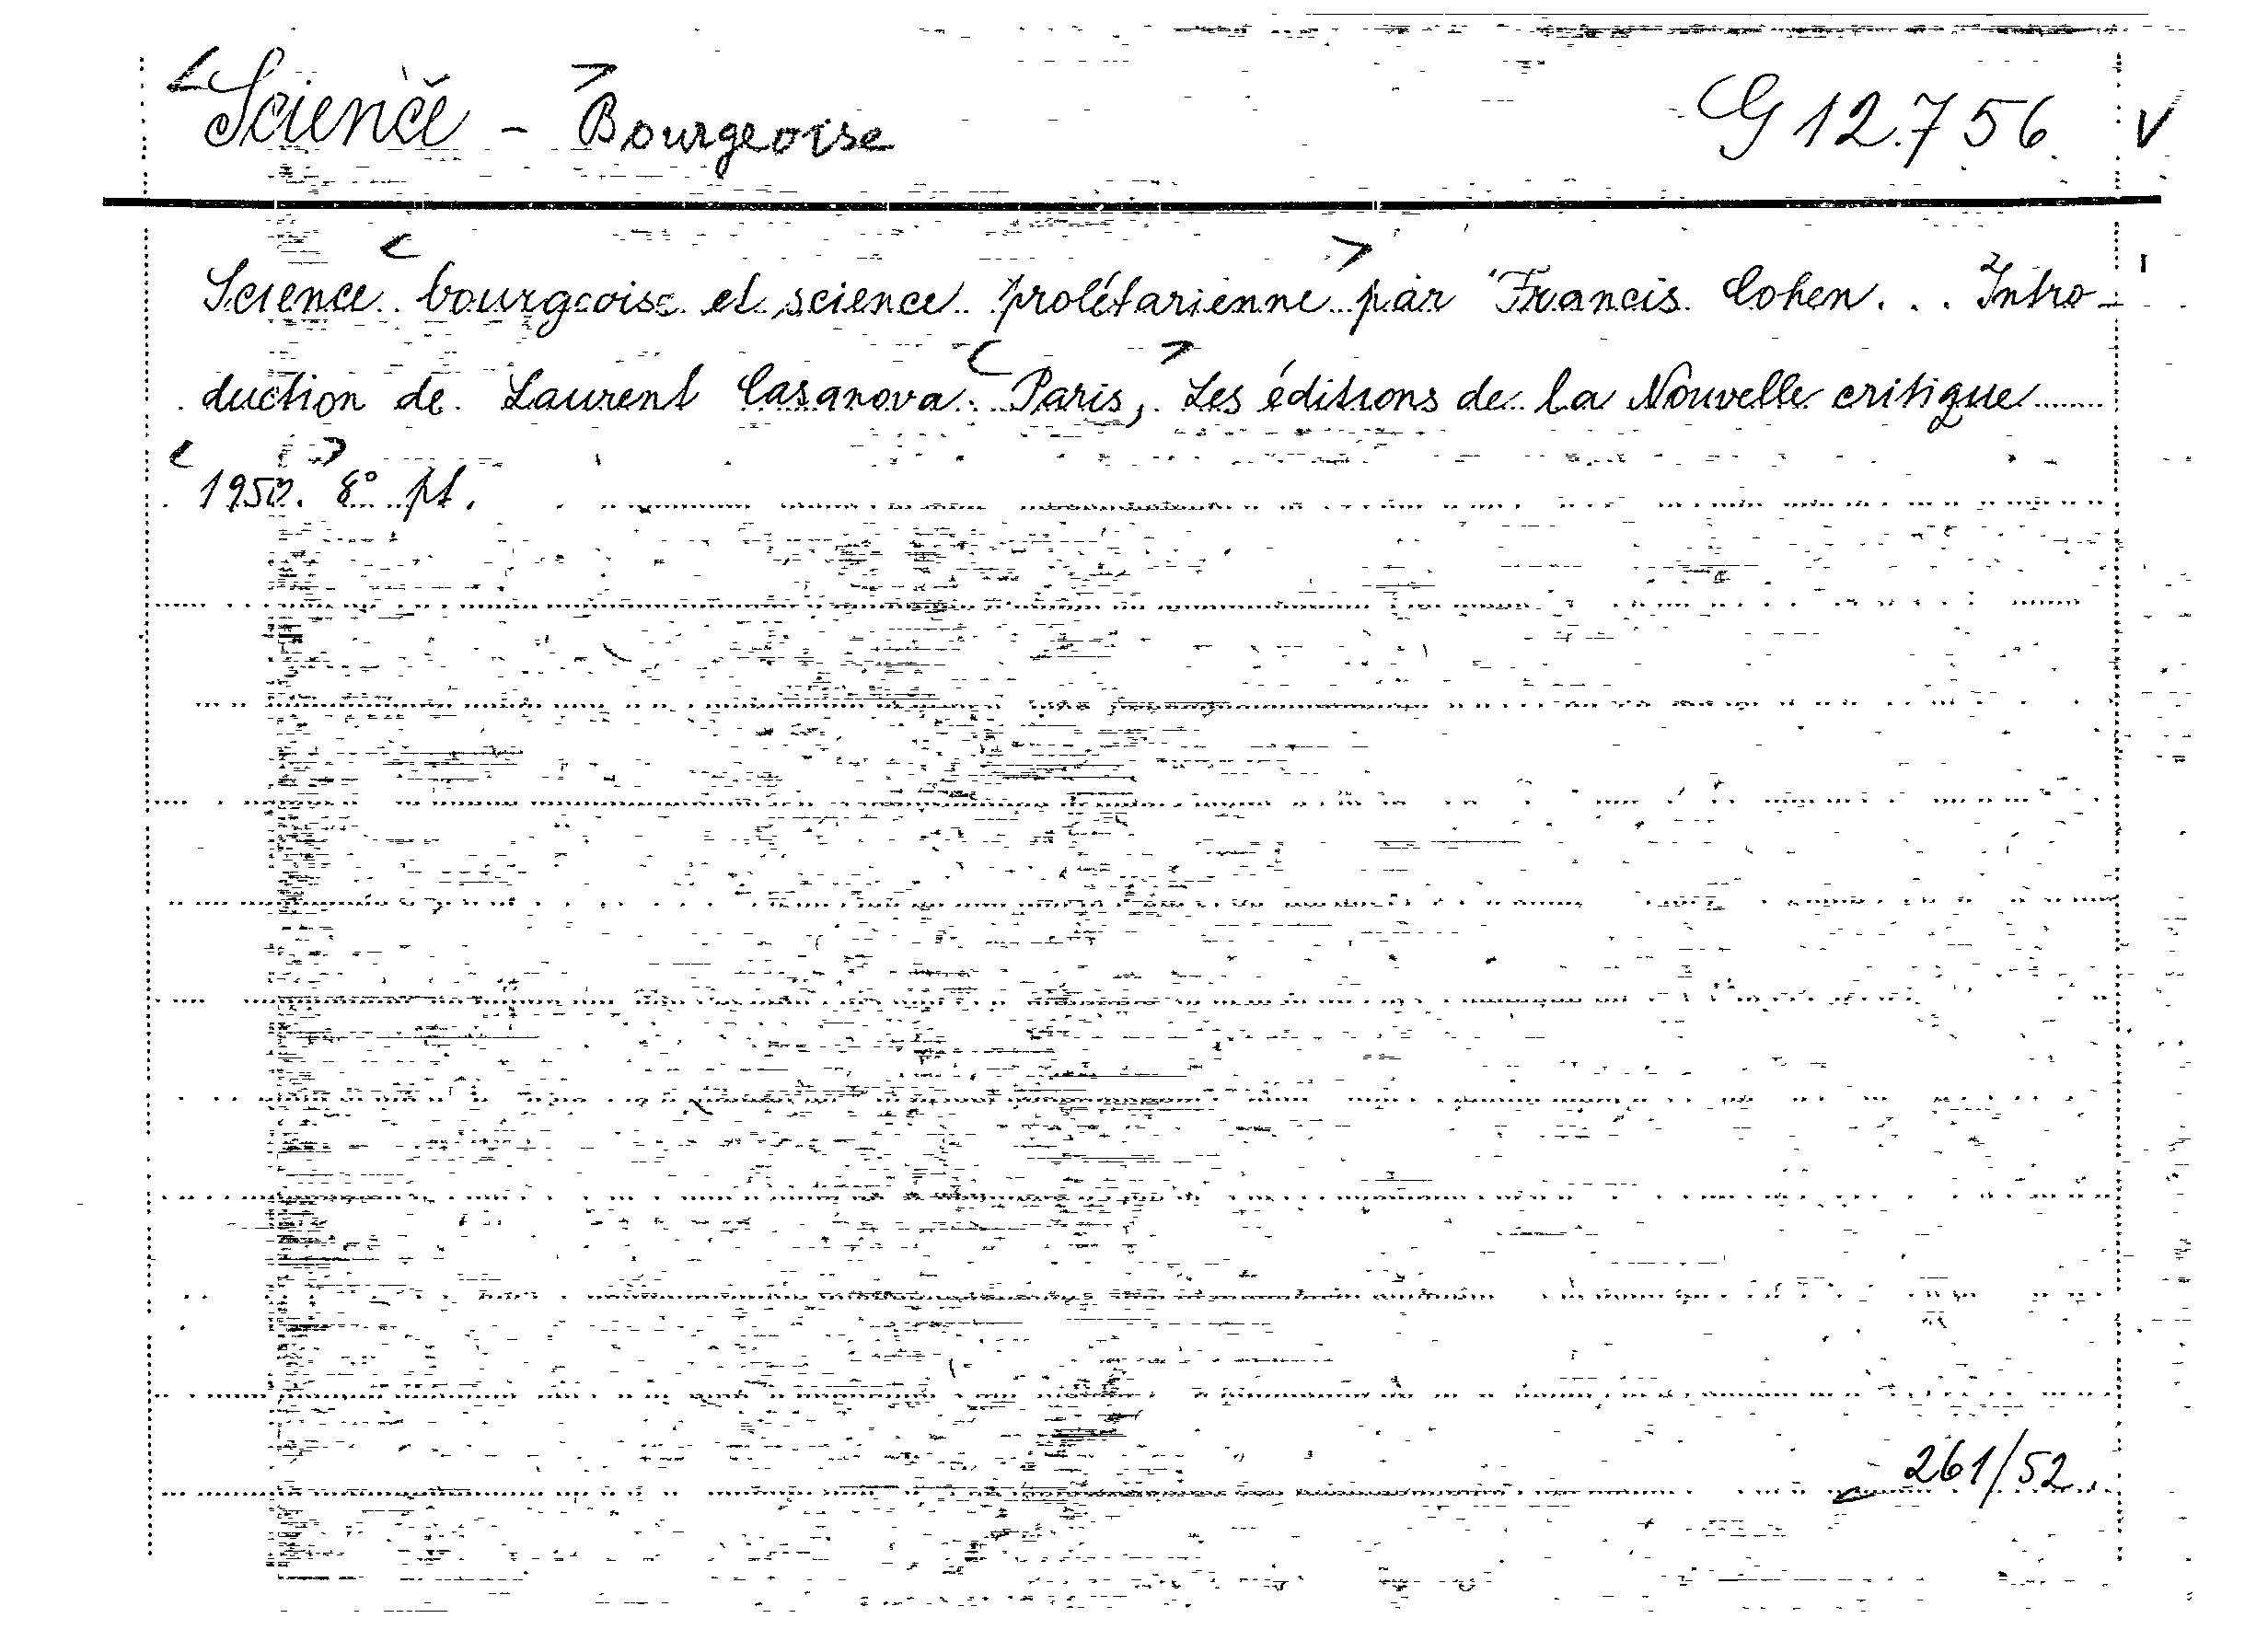 Science - Bourgeoise G 12.756 V
Science bourgeoise et science prolétarienne par Francis Cohen... Intro-
duction de Laurent Casanova. Paris, Les éditions de la Nouvelle critique
1950. 8° pt.
261/52.